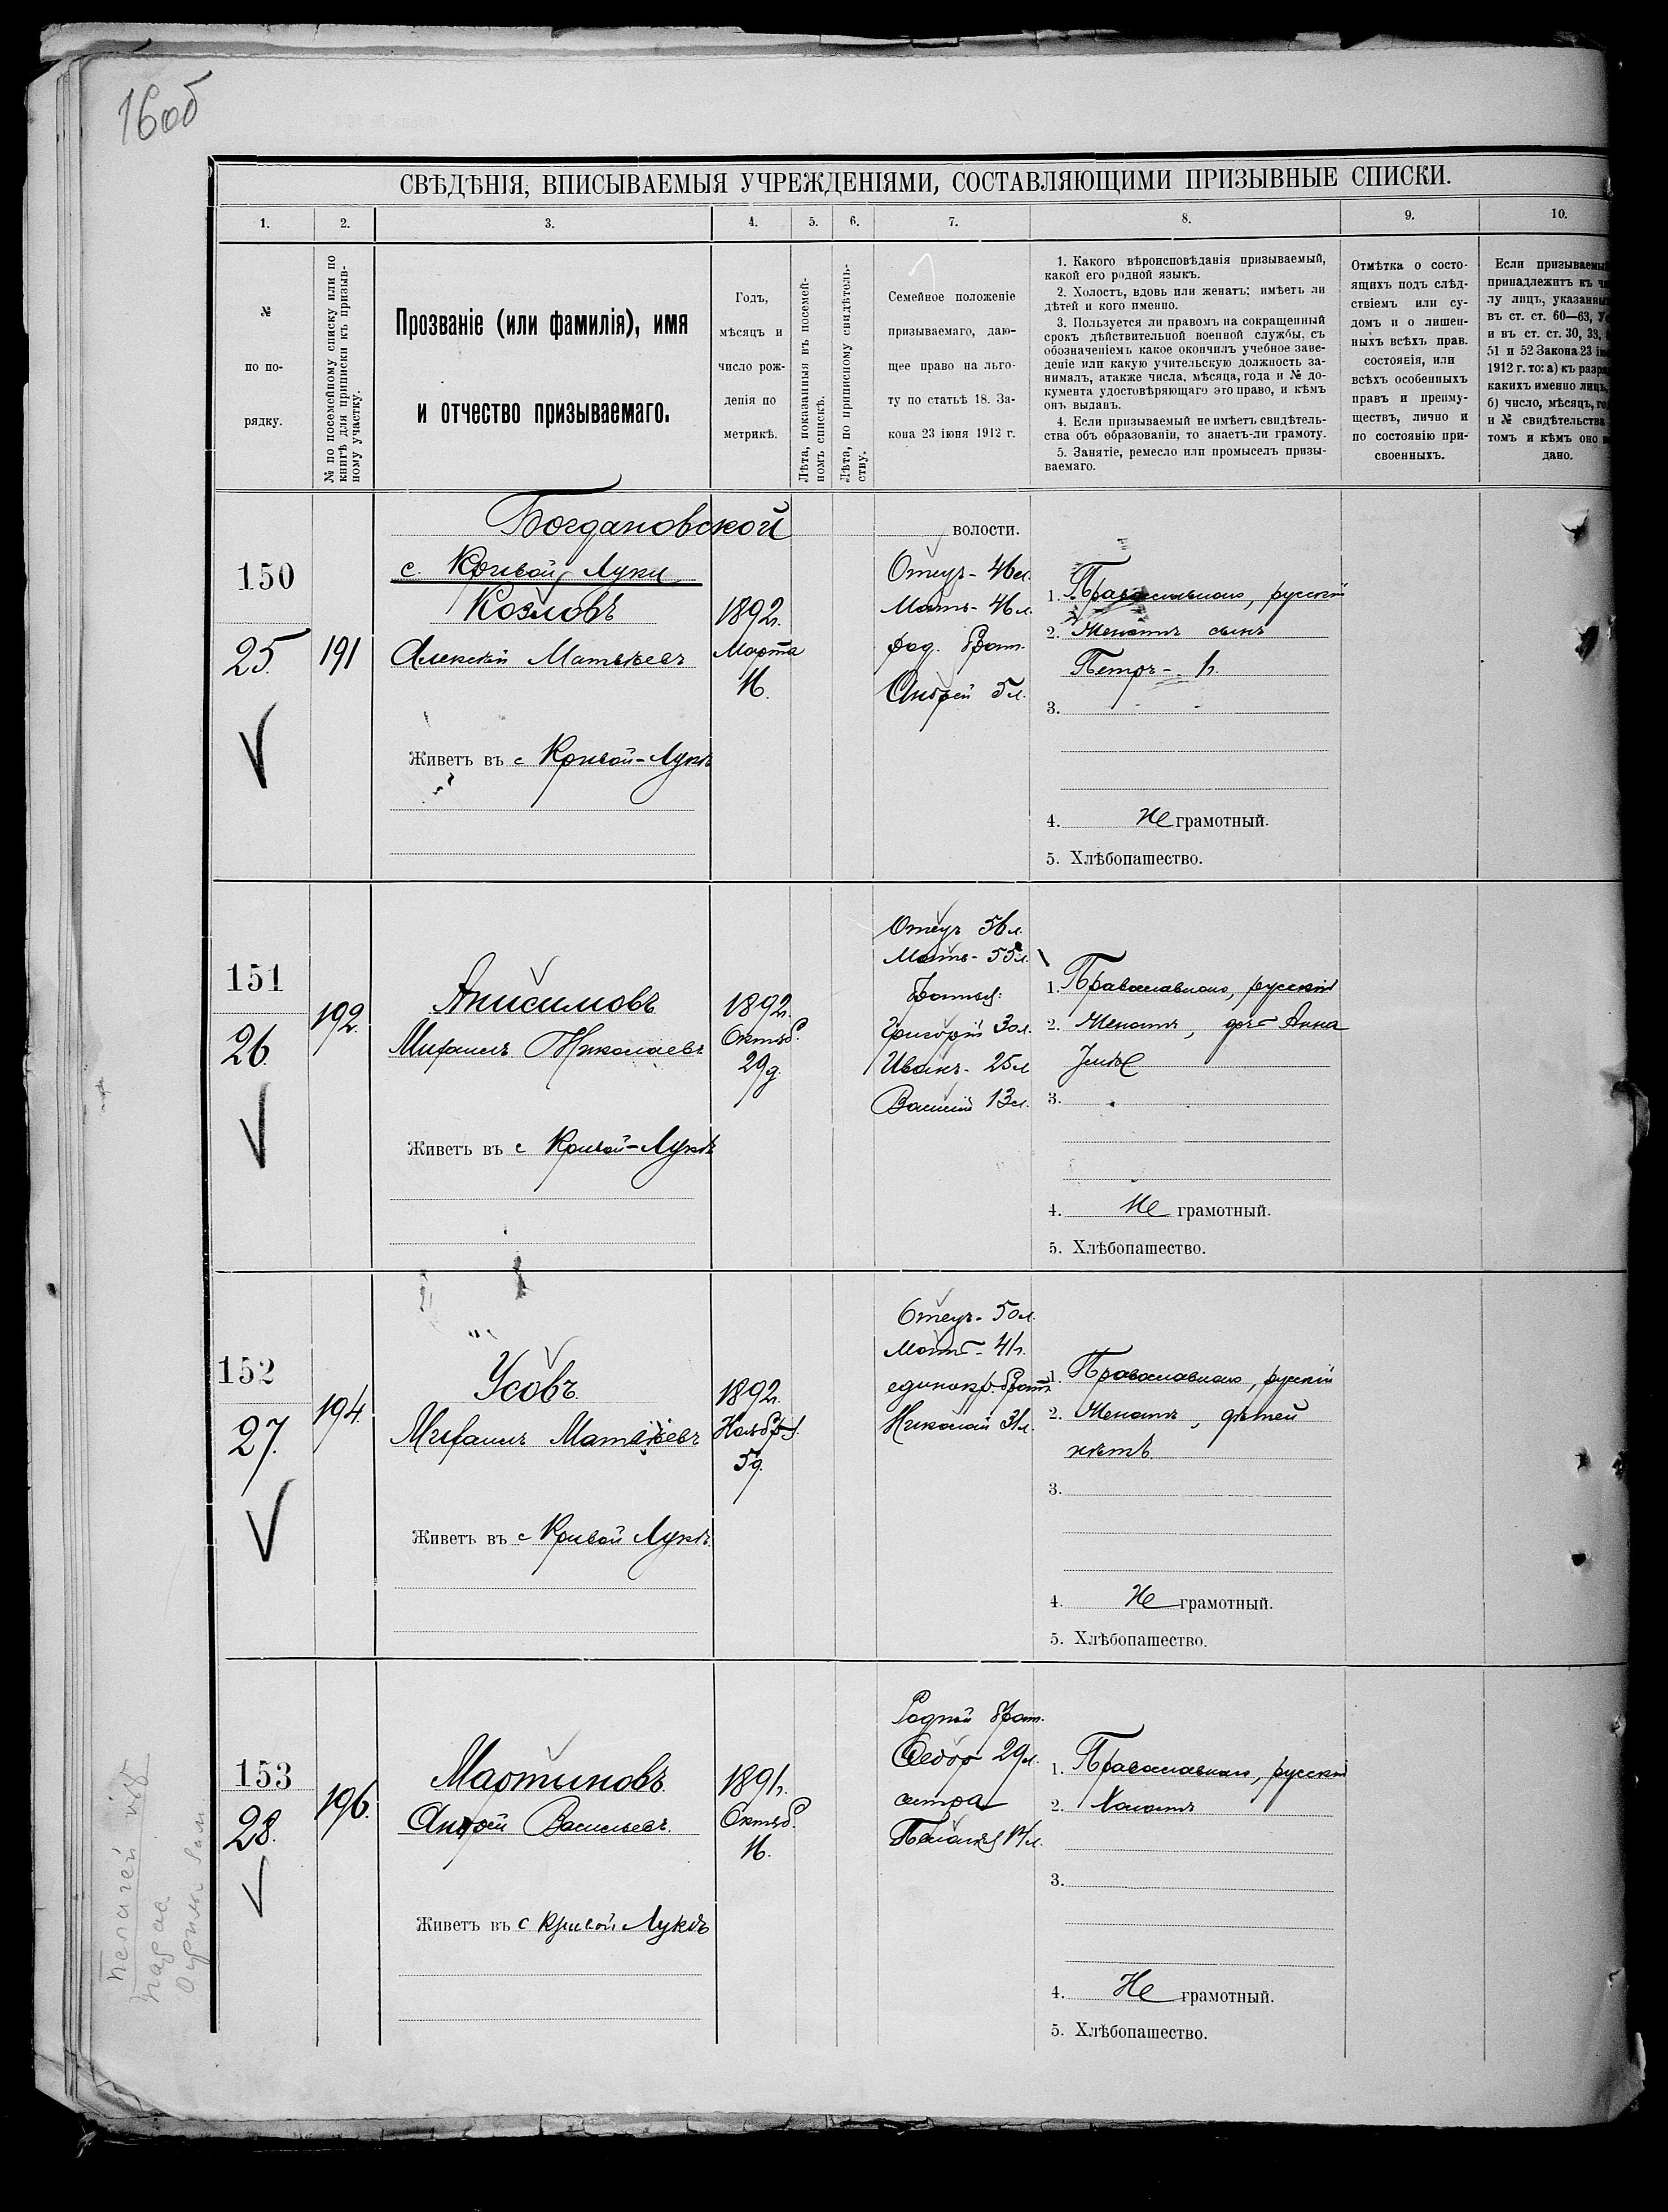 16об
СВѢДѢНІЯ, ВПИСЫВАЕМЫЯ УЧРЕЖДЕНІЯМИ, СОСТАВЛЯЮЩИМИ ПРИЗЫВНЫЕ СПИСКИ.
1. 2. 3. 4. 5. 6. 7. 8. 9. 10.
№
по по-
рядку.
№ по посемейному списку или по
книгѣ для приписки къ призыв-
ному участку.
Прозваніе (или фамилія), имя
и отчество призываемаго.
Годъ,
мѣсяцъ и
число рож-
денія по
метрикѣ.
Лѣта, показанныя въ посемей-
номъ спискѣ.
Лѣта, по приписному свидѣтель-
ству.
Семейное положеніе
призываемаго, даю-
щее право на льго-
ту по статьѣ 18. За-
кона 23 іюня 1912 г.
1. Какого вѣроисповѣданія призываемый,
какой его родной языкъ.
2. Холостъ, вдовъ или женатъ; имѣетъ ли
дѣтей и кого именно.
3. Пользуется ли правомъ на сокращенный
срокъ дѣйствительной военной службы, съ
обозначеніемъ какое окончилъ учебное заве-
деніе или какую учительскую должность за-
нималъ, атакже числа, мѣсяца, года и № до-
кумента удостовѣряющаго это право, и кѣмъ
онъ выданъ.
4. Если призываемый не имѣетъ свидѣтель-
ства объ образованіи, то знаетъ-ли грамоту.
5. Занятіе, ремесло или промыселъ призы-
ваемаго.
Отмѣтка о состо-
ящихъ подъ слѣд-
ствіемъ или су-
домъ и о лишен-
ныхъ всѣхъ прав.
состоянія, или
всѣхъ особенныхъ
правъ и преиму-
ществъ, лично и
по состоянію при-
своенныхъ.
Если призываемы
принадлежитъ къ
лу лицъ, указанны
въ ст. ст. 60—63,
и въ ст. ст. 30, 33,
51 и 52 Закона 23
1912 г. то: а) къ
какихъ именно лицъ,
б) число, мѣсяцъ,
и № свидѣтельства
томъ и кѣмъ оно
дано.
Богдановской волости.
150
25. 191
с. Кривой Луки
Козловъ
Алексѣй Матвѣевъ
Живетъ въ с Кривой-Лукѣ
1892г.
Марта
16.
Отецъ - 46л.
Мать - 46л.
род. брат.
Андрей 5л.
1. Православнаго, русскій
2. Женатъ сынъ
Петръ - 1г.
3.
4. Не грамотный.
5. Хлѣбопашество.
151
26. 192.
Анисимовъ
Михаилъ Николаевъ
Живетъ въ с Кривой-Лукѣ
1892г.
Октяб.
29д.
Отецъ 56л.
Мать - 55л.
братья:
Григорій 30л.
Иванъ - 25л
Василій 13л.
1. Православнаго, русскій
2. Женатъ, дочь Анна
3.
4. Не грамотный.
5. Хлѣбопашество.
152
27. 194.
Усовъ
Михаилъ Матвѣевъ
Живетъ въ с Кривой Лукѣ.
1892г.
Ноября.
5д.
Отецъ - 50л.
Мать - 41г.
единокр. братъ
Николай 31л.
1. Православнаго, русскій
2. Женатъ, дѣтей
нѣтъ.
3.
4. Не грамотный.
5. Хлѣбопашество.
153
28. 196.
Мартыновъ
Андрей Васильевъ.
Живетъ въ с Кривой Лукѣ
1891г.
Октяб.
16.
Родной брат.
Ѳедоръ 29л.
сестра
Пелагея 17л.
1. Православнаго, русскій
2. Холостъ
3.
4. Не грамотный.
5. Хлѣбопашество.